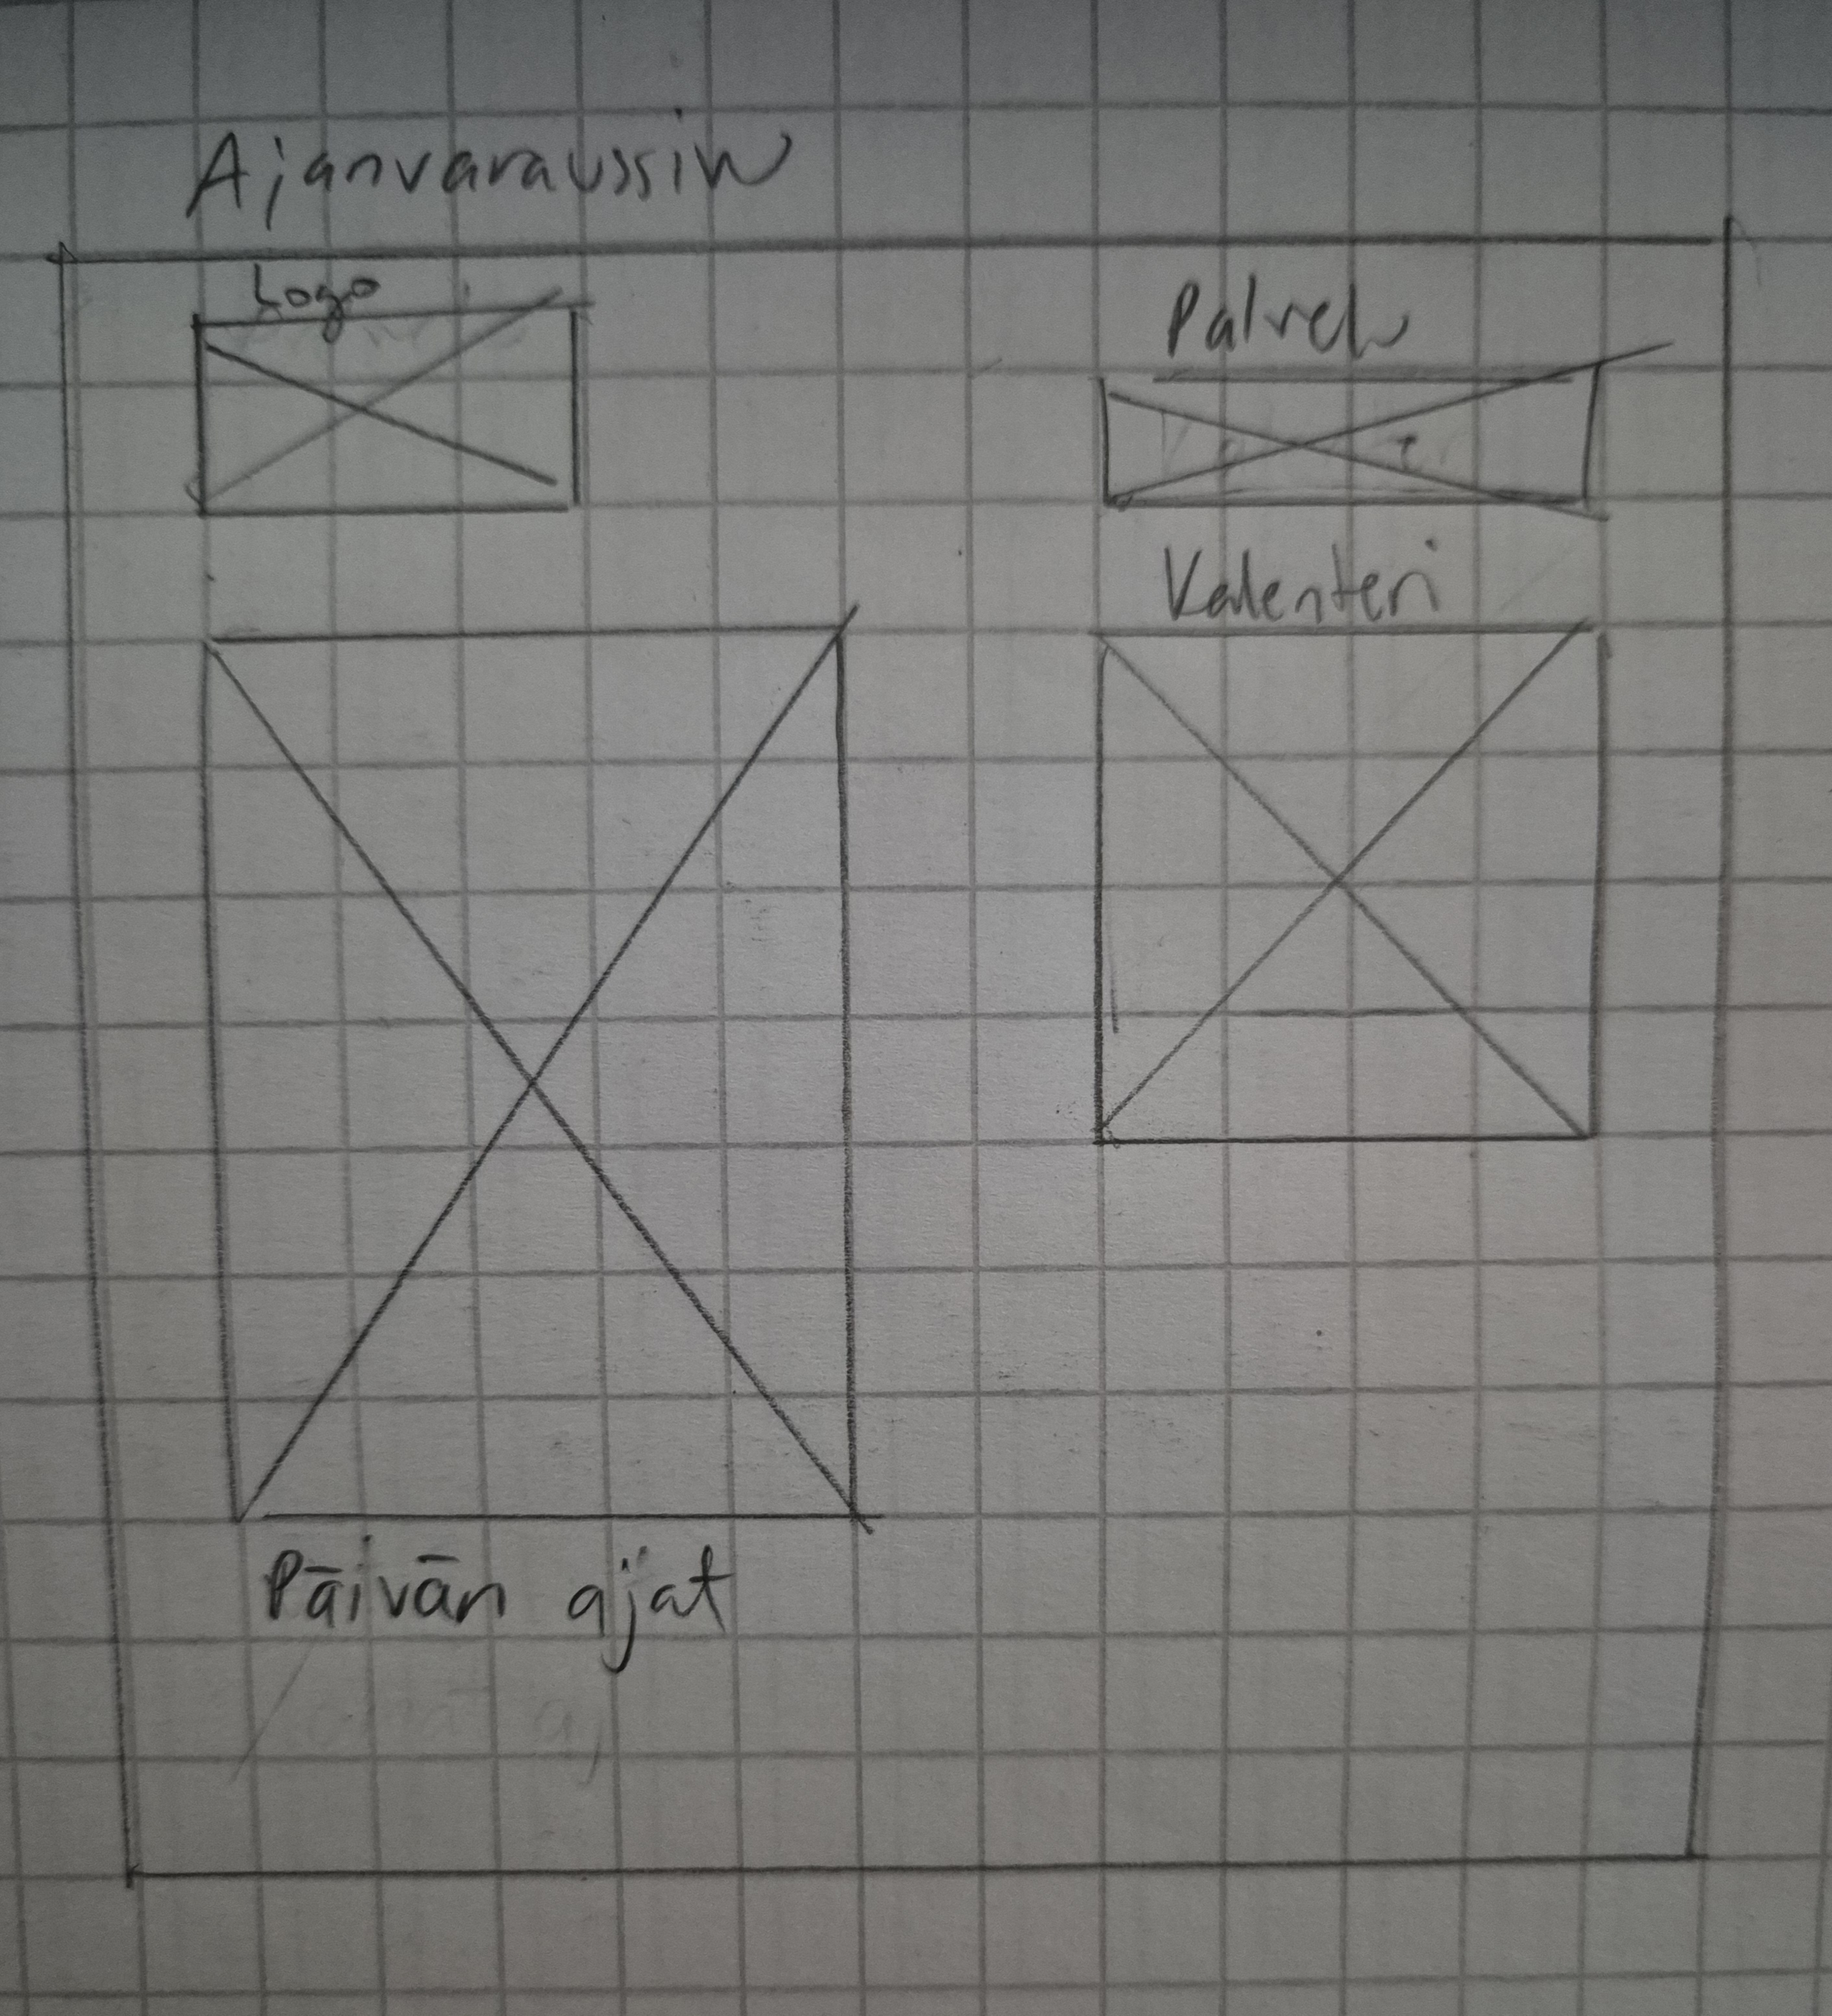 Ajanvaraussivu
Logo
Palvelu
Kalenteri
Päivän ajat